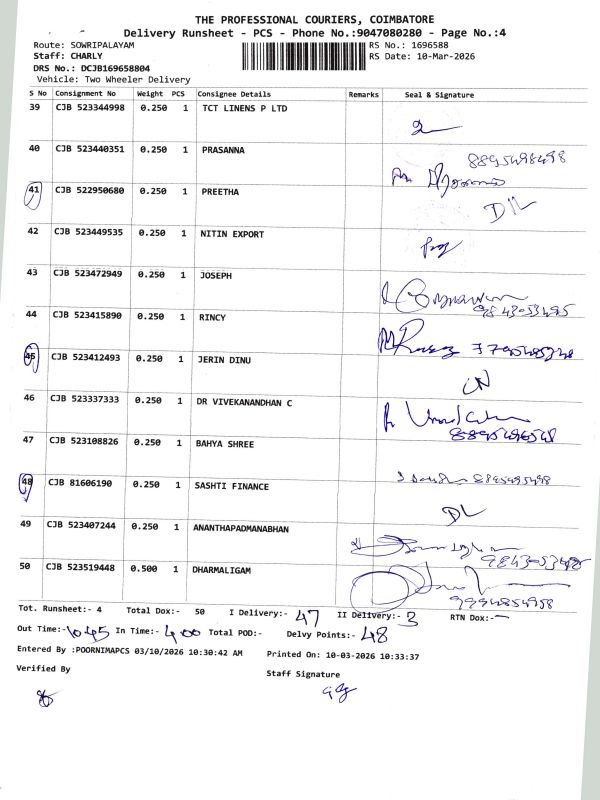 THE PROFESSIONAL COURIERS, COIMBATORE
Delivery Runsheet - PCS - Phone No.:9047080280 - Page No.:4
Route: SOWRIPALAYAM RS No.: 1696588
Staff: CHARLY RS Date: 10-Mar-2026
DRS No.: DCJB169658804
Vehicle: Two Wheeler Delivery
S No Consignment No Weight PCS Consignee Details Remarks Seal & Signature
39 CJB 523344998 0.250 1 TCT LINENS P LTD
40 CJB 523440351 0.250 1 PRASANNA
41 CJB 522950680 0.250 1 PREETHA
D/L
42 CJB 523449535 0.250 1 NITIN EXPORT
43 CJB 523472949 0.250 1 JOSEPH
44 CJB 523415890 0.250 1 RINCY
45 CJB 523412493 0.250 1 JERIN DINU
46 CJB 523337333 0.250 1 DR VIVEKANANDHAN C
47 CJB 523108826 0.250 1 BAHYA SHREE
48 CJB 81606190 0.250 1 SASHTI FINANCE
DL
49 CJB 523407244 0.250 1 ANANTHAPADMANABHAN
50 CJB 523519448 0.500 1 DHARMALIGAM
Tot. Runsheet:- 4 Total Dox:- 50 I Delivery:- 47 II Delivery:- 3 RTN Dox:-
Out Time:- 1045 In Time:- 400 Total POD:- Delvy Points:- 48
Entered By :POORNIMAPCS 03/10/2026 10:30:42 AM Printed On: 10-03-2026 10:33:37
Verified By Staff Signature